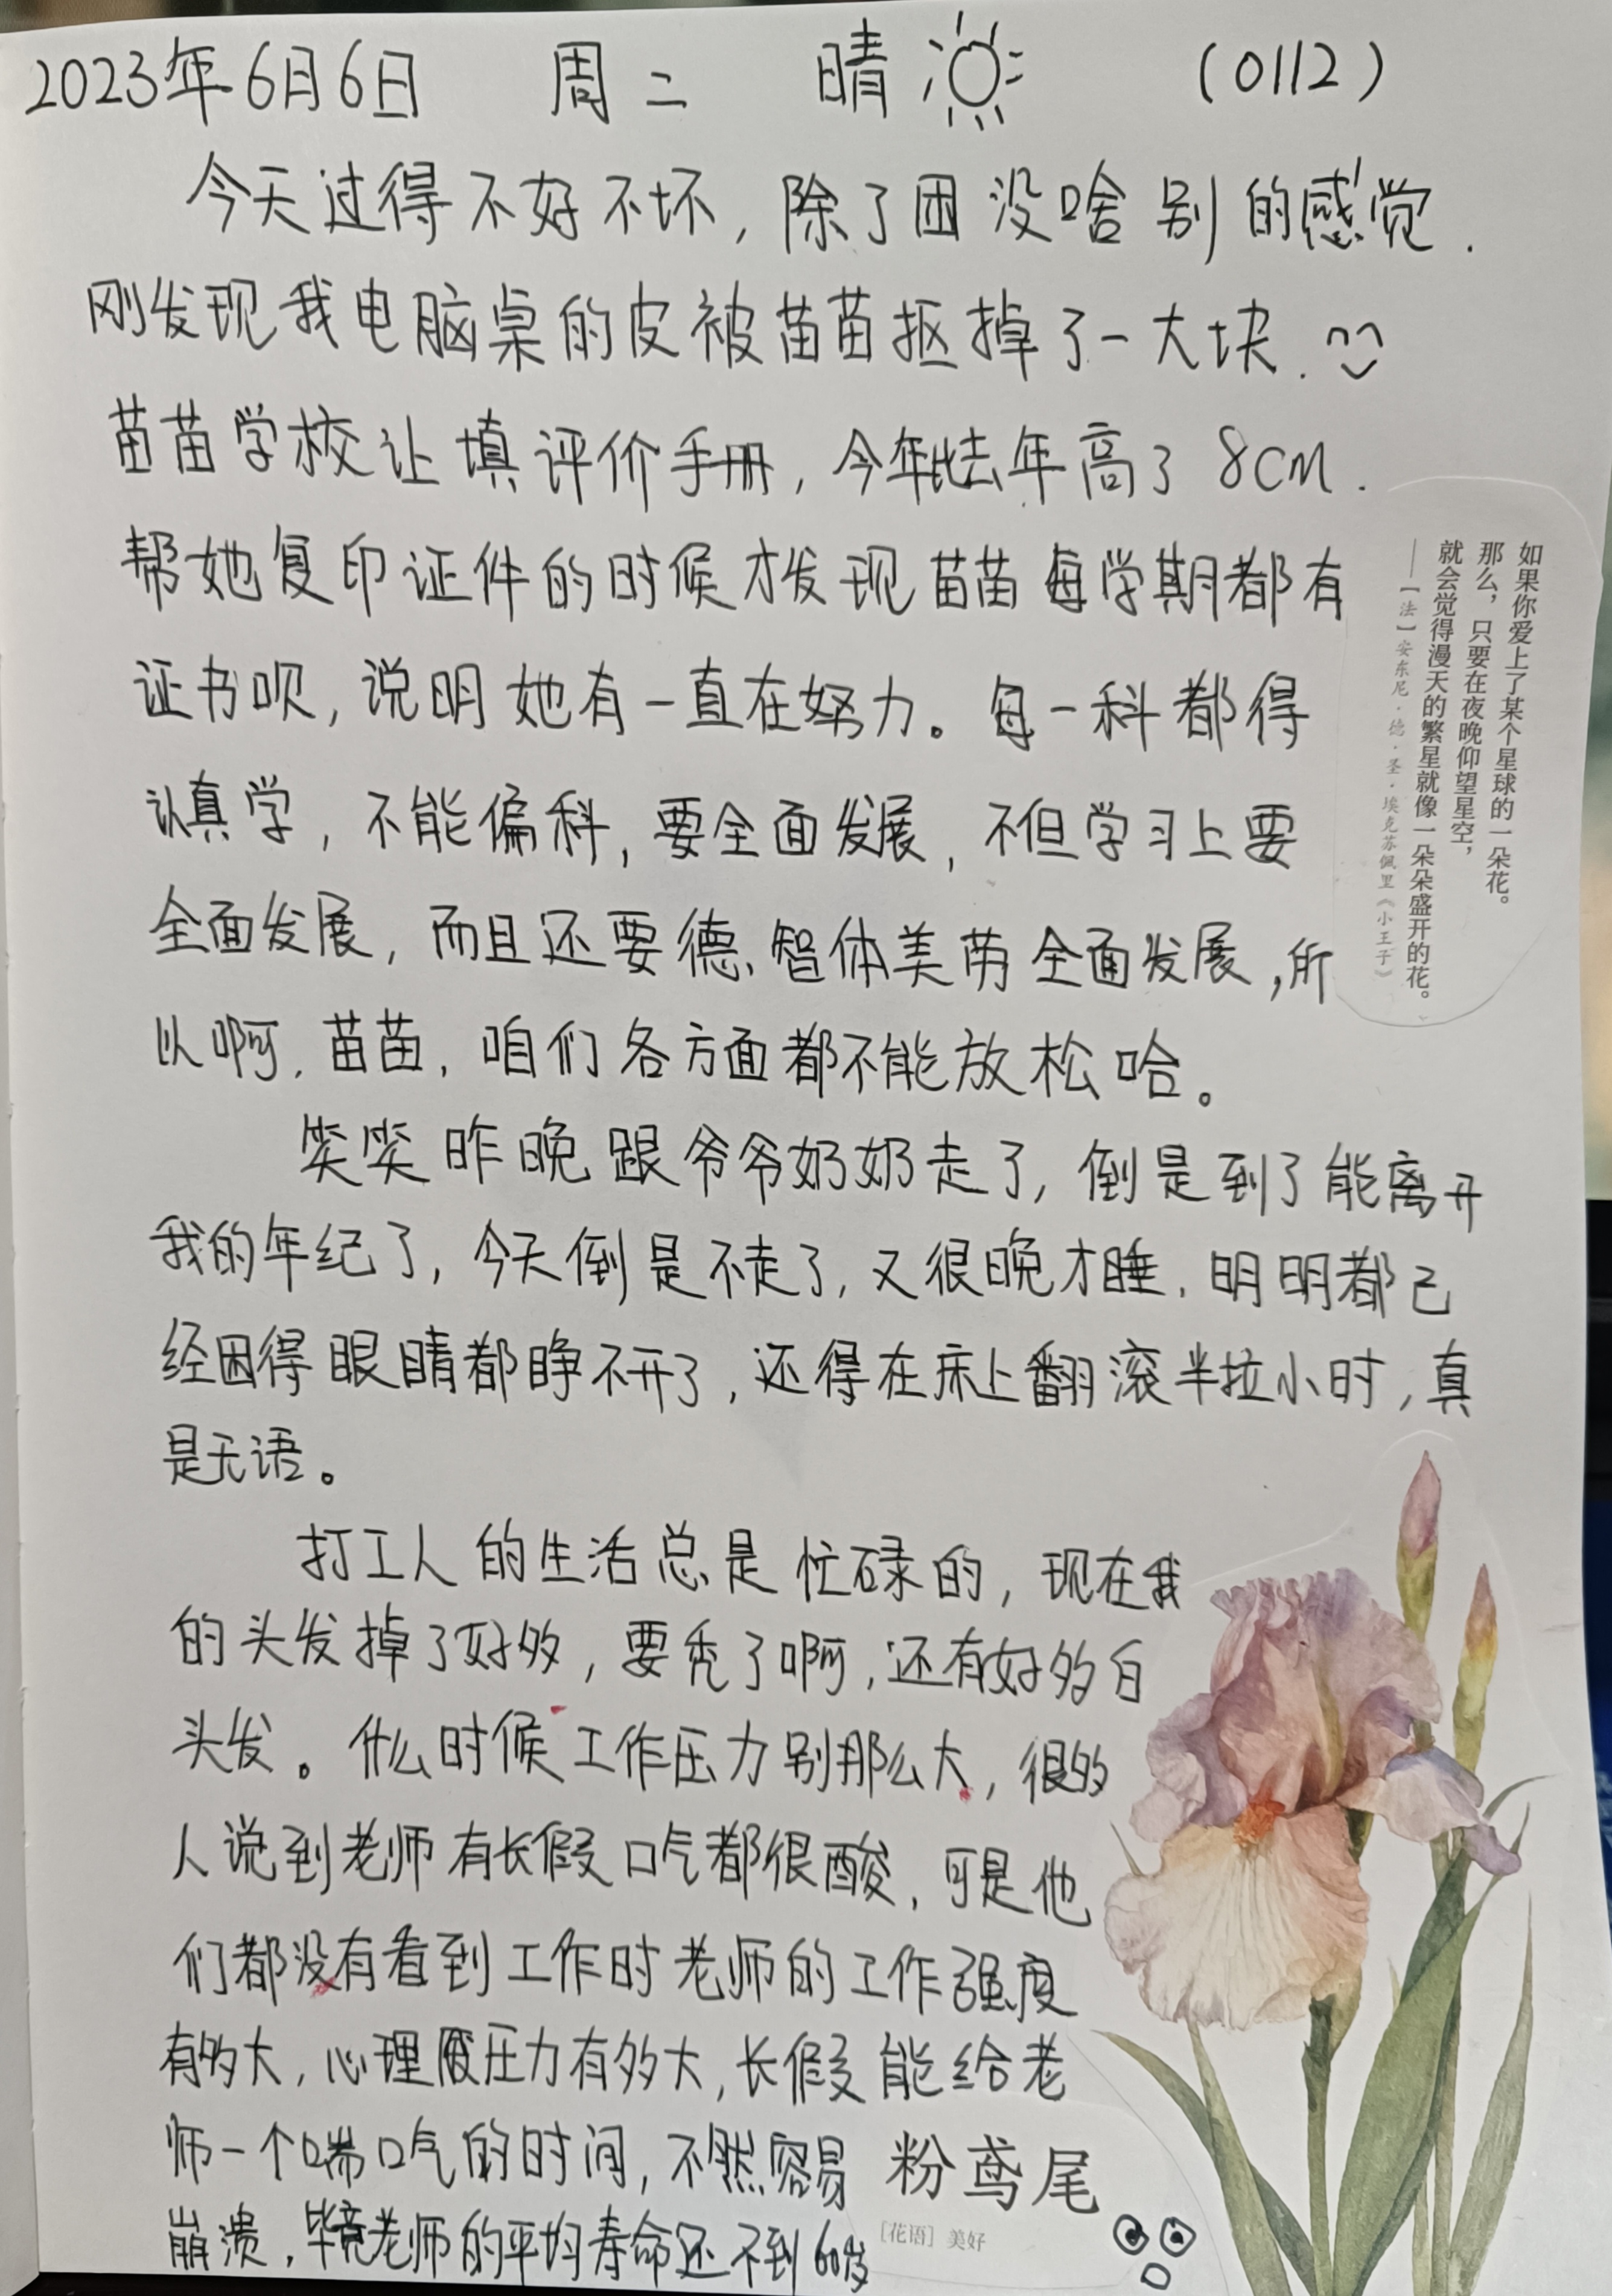 2023年6月6日 周二 晴 (0112)
今天过得不好不坏，除了困没啥别的感觉.
刚发现我电脑桌的皮被苗苗抠掉了一大块.
苗苗学校让填评价手册，今年比去年高了8CM.
帮她复印证件的时候才发现苗苗每学期都有
证书呗，说明她有一直在努力。每一科都得
认真学，不能偏科，要全面发展，不但学习上要
全面发展，而且还要德、智体美劳全面发展，所
以啊，苗苗，咱们各方面都不能放松哈。
笑笑昨晚跟爷爷奶奶走了，倒是到了能离开
我的年纪了，今天倒是不走了，又很晚才睡，明明都已
经困得眼睛都睁不开了，还得在床上翻滚半拉小时，真
是无语。
打工人的生活总是忙碌的，现在我
的头发掉了好多，要秃了啊，还有好多白
头发。什么时候工作压力别那么大，很多
人说到老师有长假口气都很酸，可是他
们都没有看到工作时老师的工作强度
有多大，心理压力有多大，长假能给老
师一个喘口气的时间，不然容易
崩溃，毕竟老师的平均寿命还不到60岁
如果你爱上了某个星球的一朵花。
那么，只要在夜晚仰望星空，
就会觉得漫天的繁星就像一朵朵盛开的花。
——[法]安东尼·德·圣·埃克苏佩里《小王子》
粉鸢尾
[花语] 美好